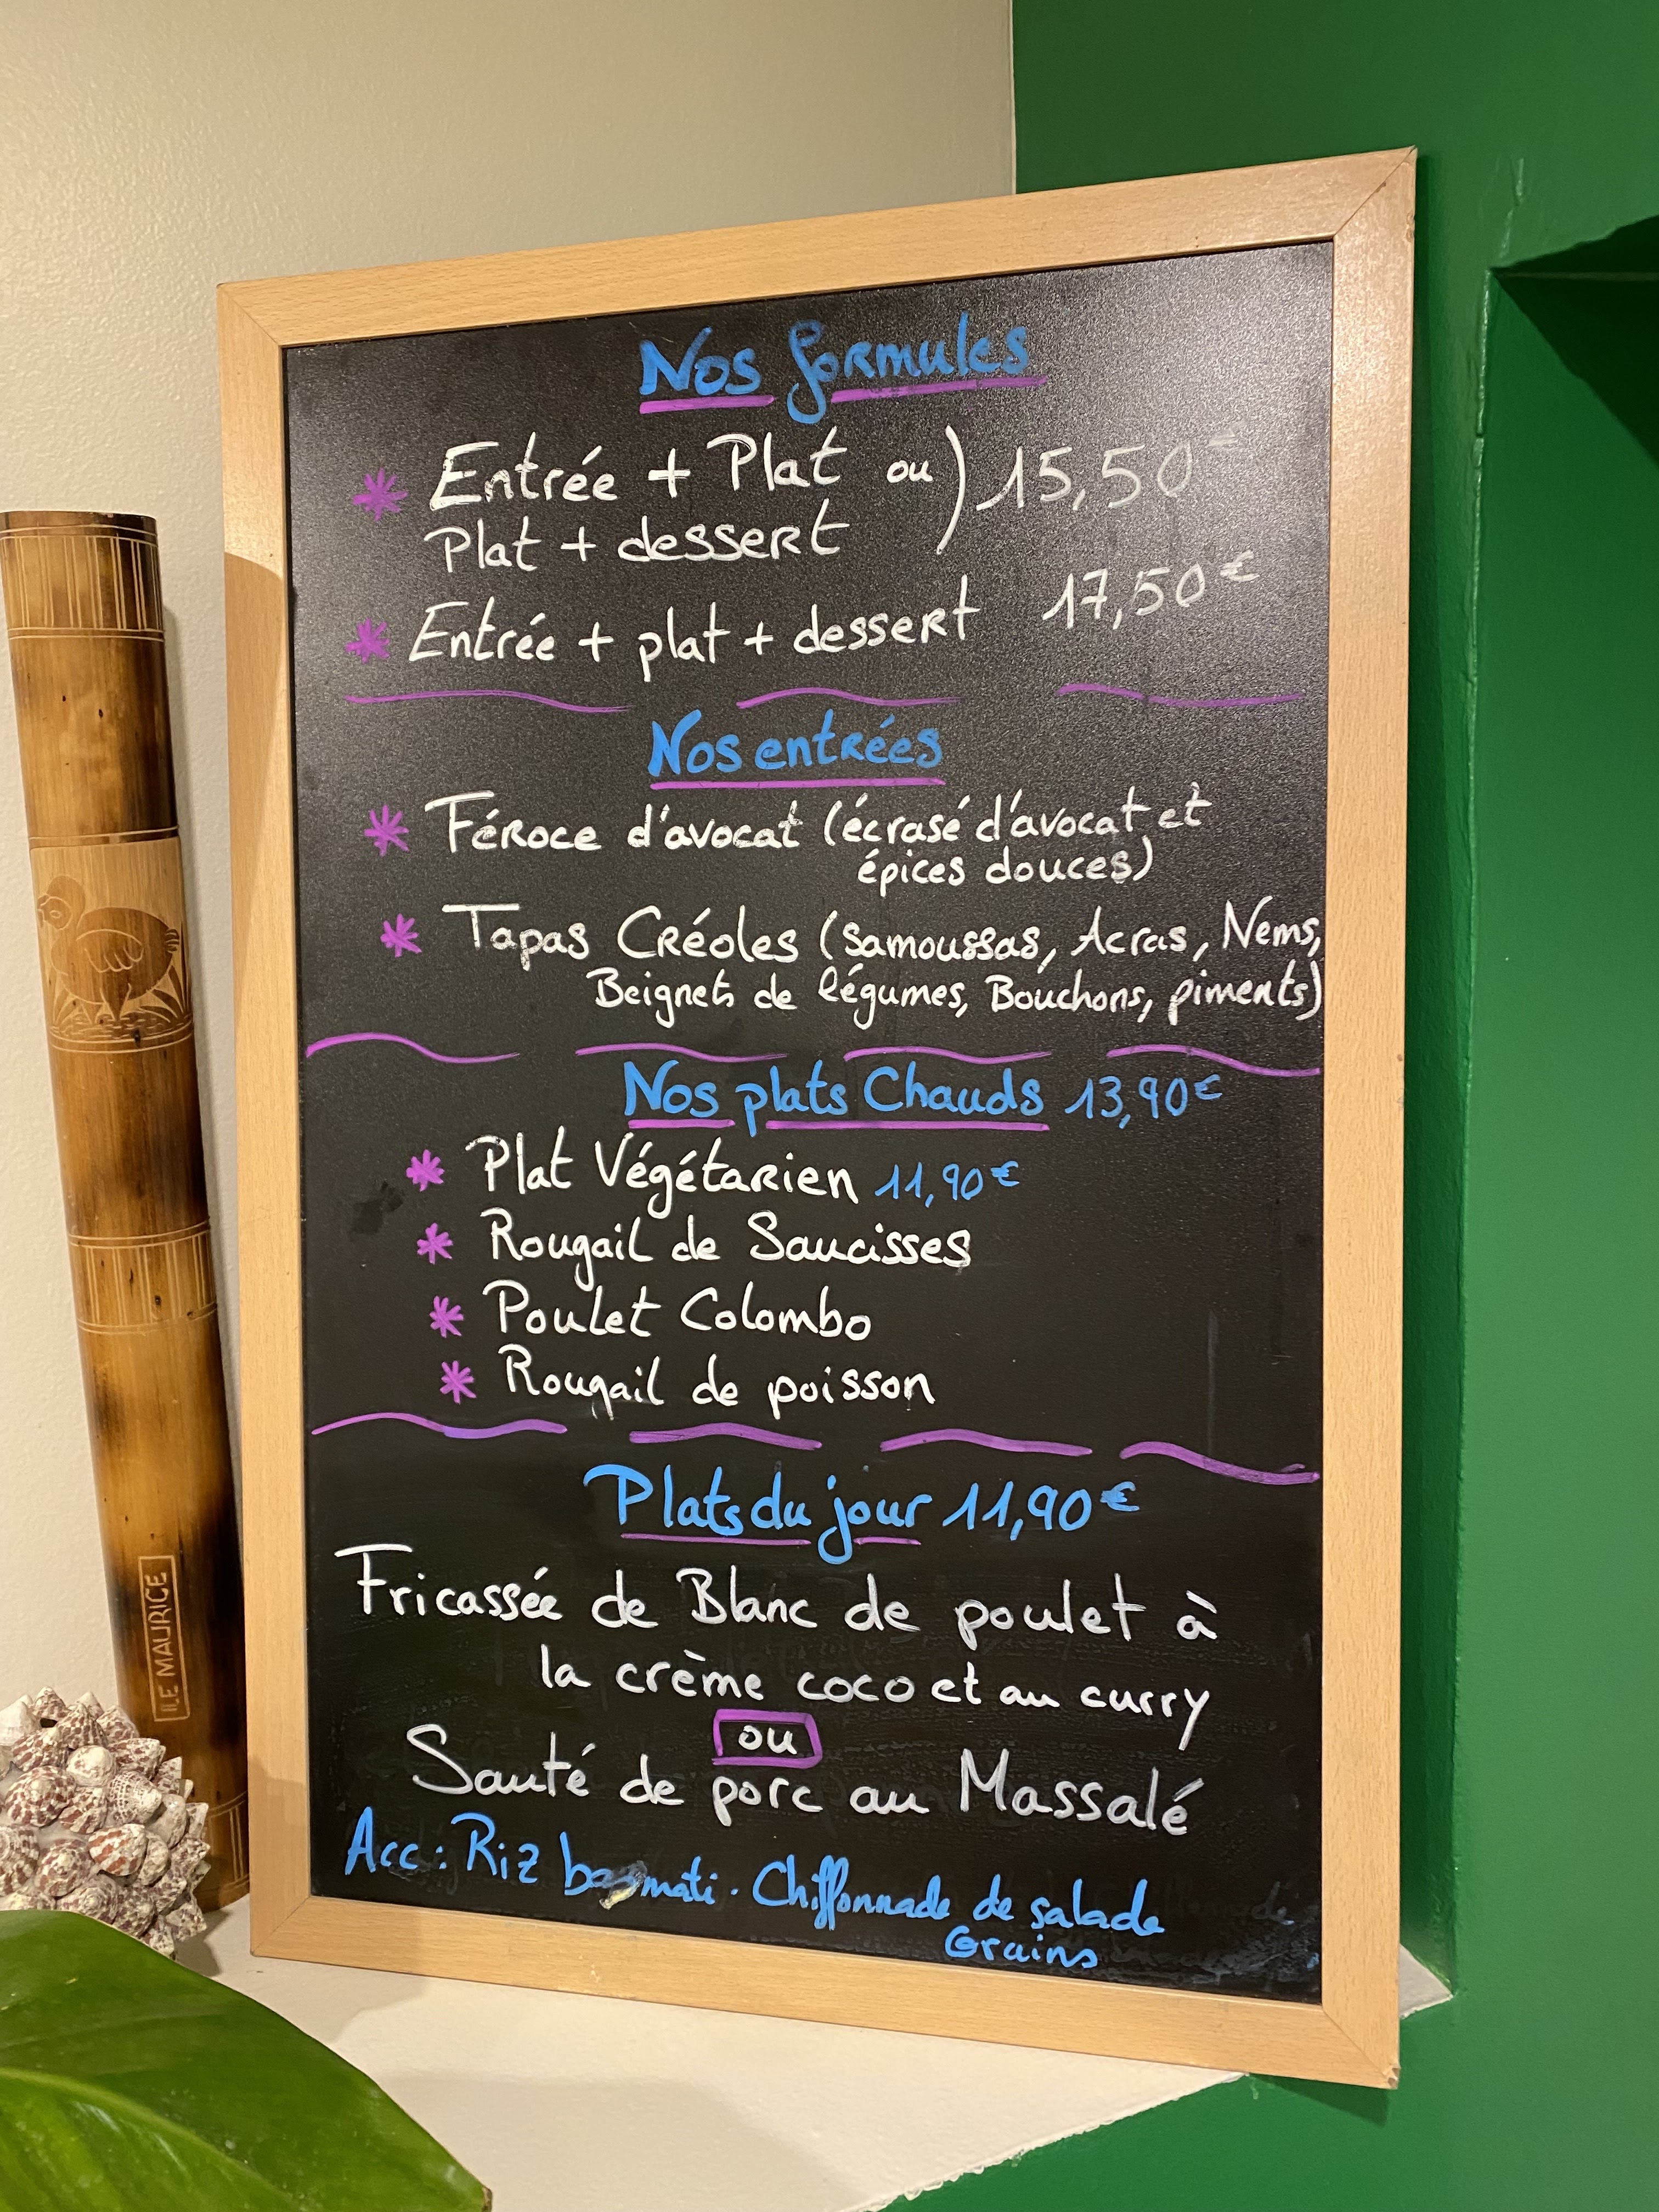 Nos formules
* Entrée + Plat ou ) 15,50
Plat + dessert
* Entrée + plat + dessert 17,50€
Nos entrées
* Féroce d'avocat (écrasé d'avocat et
épices douces)
* Tapas Créoles (samoussas, Acras, Nems,
Beignets de légumes, Bouchons, piments)
Nos plats Chauds 13,90€
* Plat Végétarien 11,90€
* Rougail de Saucisses
* Poulet Colombo
* Rougail de poisson
Plats du jour 11,90€
Fricassée de Blanc de poulet à
la crème coco et au curry
ou
Sauté de porc au Massalé
Acc : Riz basmati. Chiffonnade de salade
Grains
ILE MAURICE